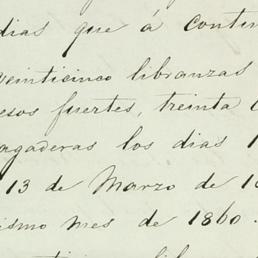 dias que á contin
veinticinco libranzas
esos fuertes, treinta
agaderas los dias 1
13 de Marzo de 18
ismo mes de 1860.